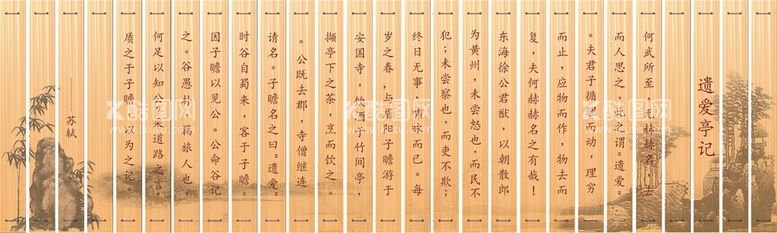 遗爱亭记
何武所至，无赫赫名，去
而人思之，此之谓“遗爱”
。夫君子循理而动，理穷
而止，应物而作，物去而
复，夫何赫赫名之有哉！
东海徐公君猷，以朝散郎
为黄州，未尝怒也，而民不
犯；未尝察也，而吏不欺；
终日无事，啸咏而已。每
岁之春，与眉阳子瞻游于
安国寺，饮酒于竹间亭，
撷亭下之茶，烹而饮之。
。公既去郡，寺僧继连
请名。子瞻名之曰“遗爱”。
时谷自蜀来，客于子瞻，
因子瞻以见公。公命谷记
之。谷愚朴，羁旅人也，
何足以知公？采道路之言，
质之于子瞻，以为之记。
苏轼